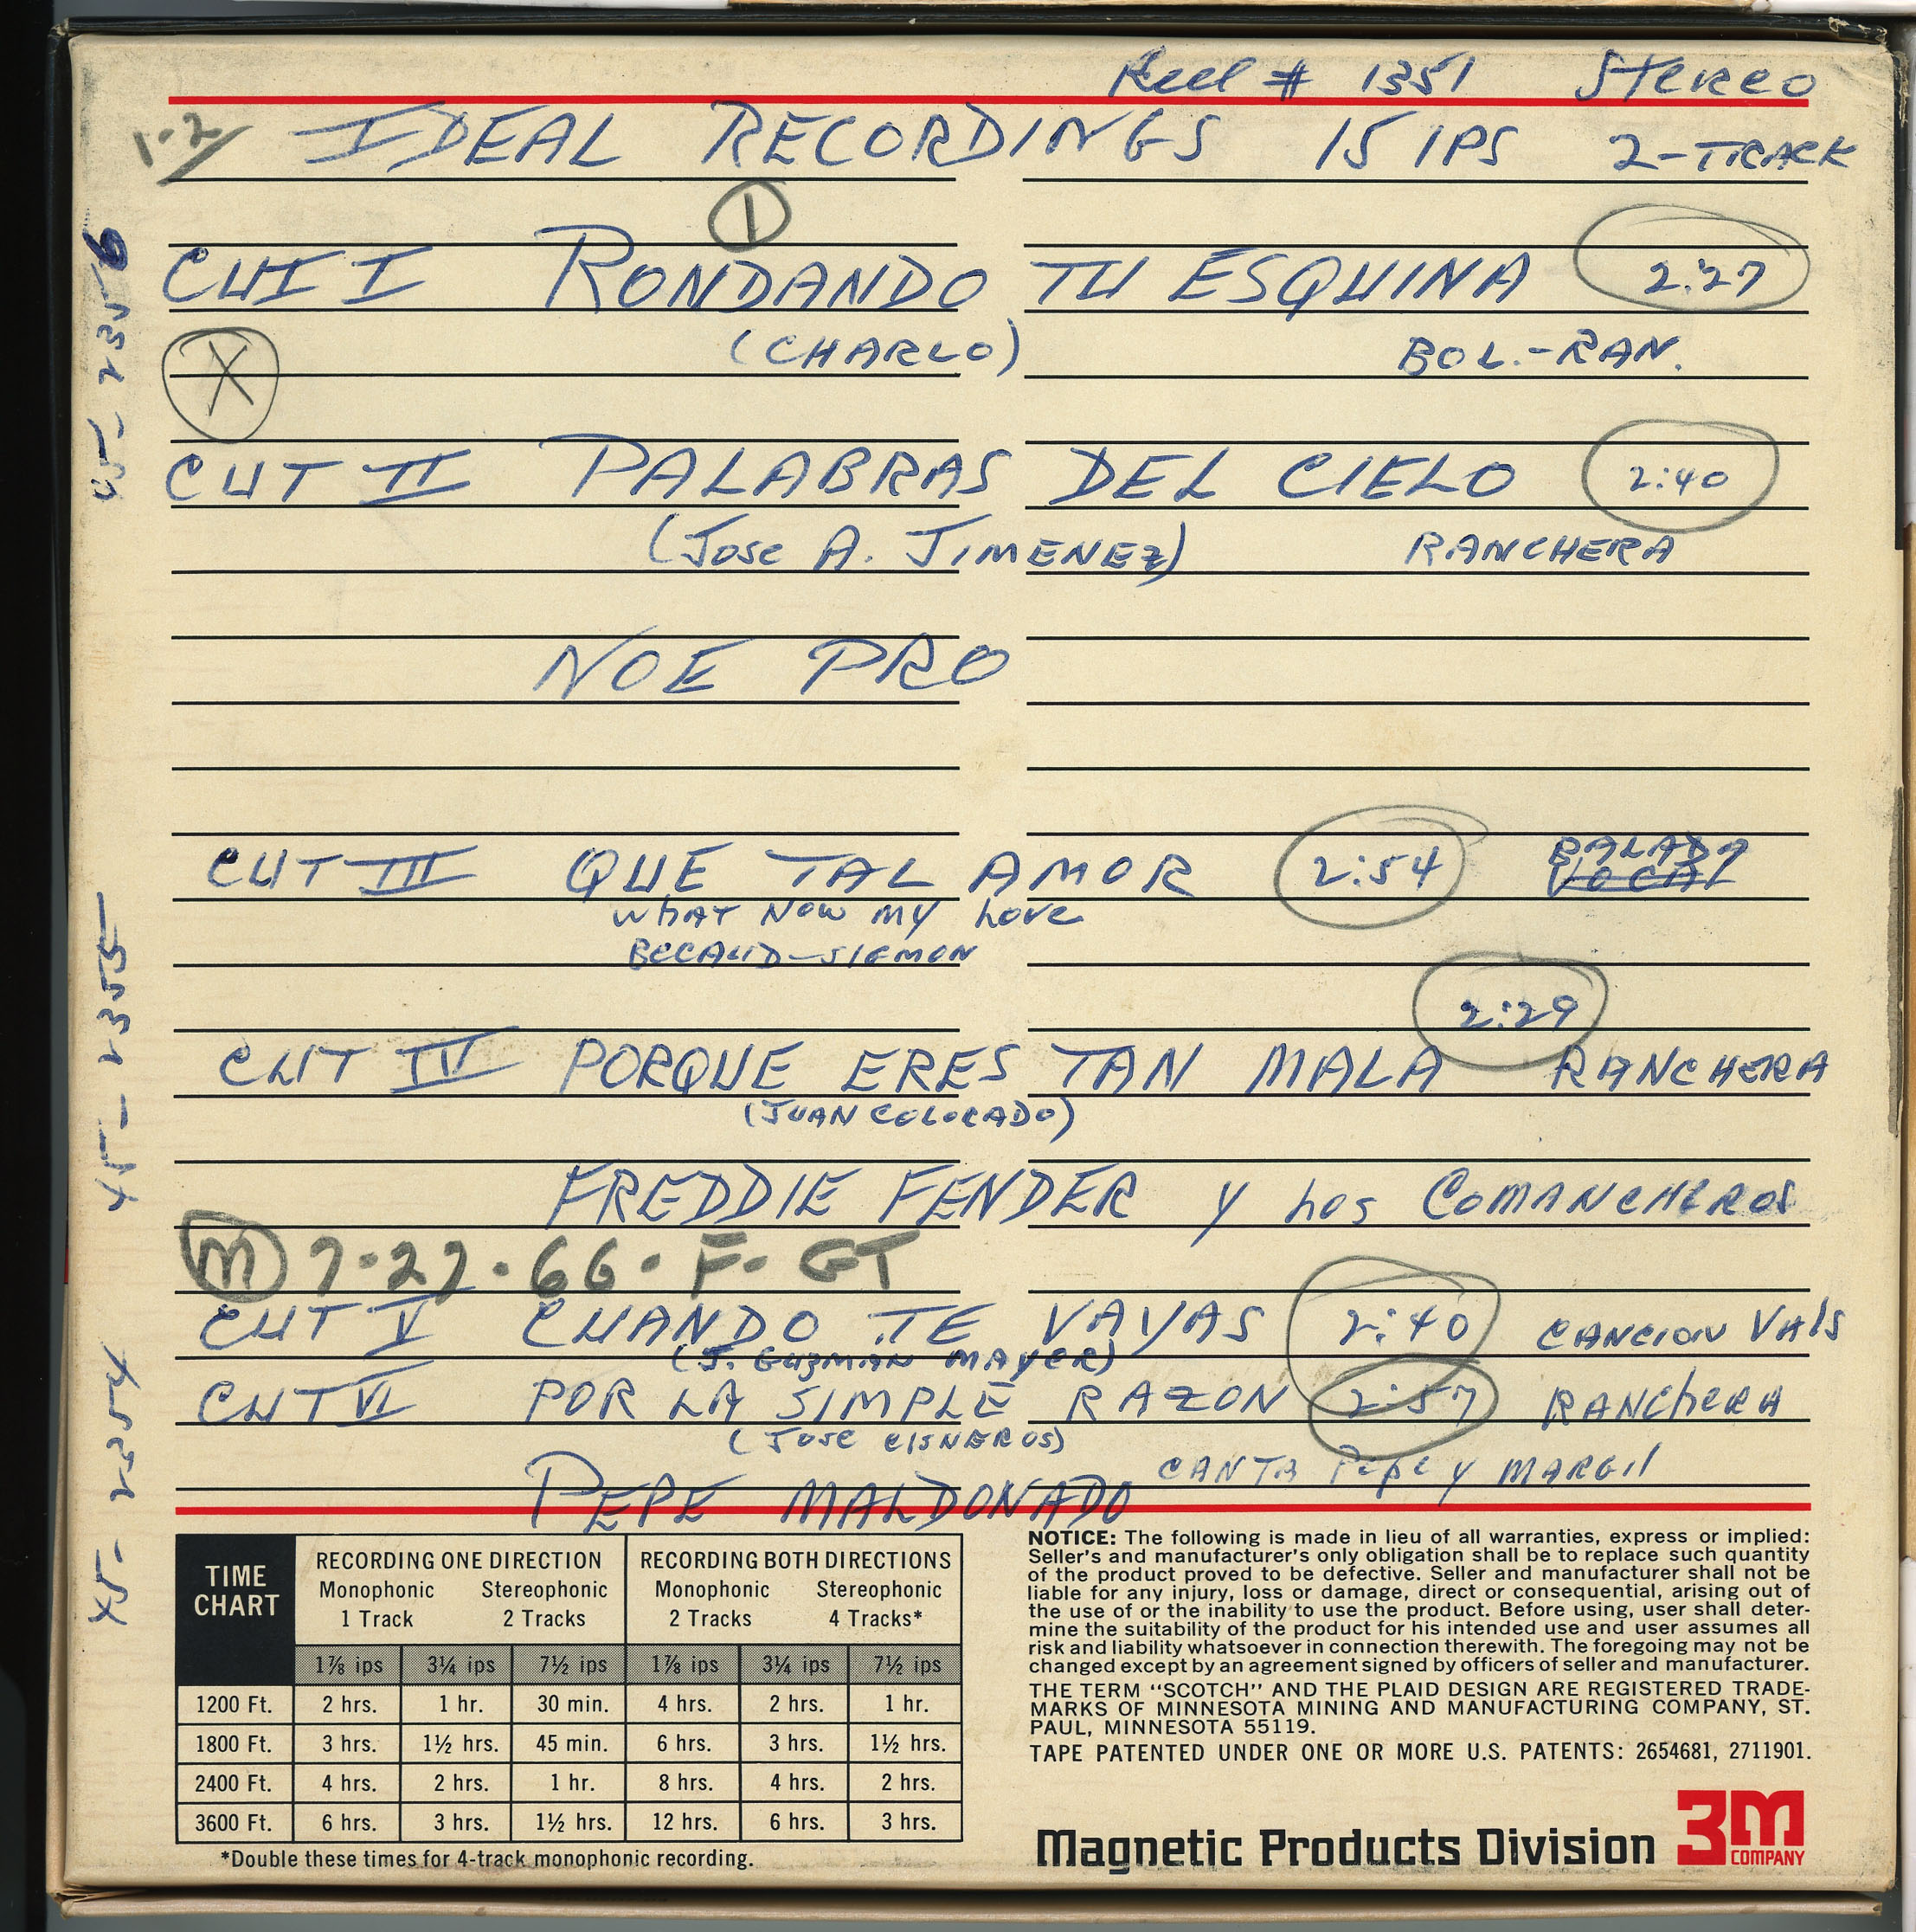 Reel # 1351 Stereo
1-2
IDEAL RECORDINGS 15 IPS 2-TRACK
1
CUT I RONDANDO TU ESQUINA 2:27
(CHARLO) BOL.-RAN.
X
CUT II PALABRAS DEL CIELO 2:40
(Jose A. JIMENEZ) RANCHERA
NOE PRO
45-2356
CUT III QUE TAL AMOR 2:54 BALADA
VOCAL
WhAT NOW MY LOVE
BECAUD-SIGMON
2:29
CUT IV PORQUE ERES TAN MALA RANCHERA
(JUAN COLORADO)
FREDDIE FENDER y Los COMANCHEROS
45-2355
M 7-27-66. F. GT
CUT V CUANDO TE VAYAS 2:40 CANCION VALS
(J. GUZMAN MAYER)
CUT VI POR LA SIMPLE RAZON 2:57 RANCHERA
(JOSE CISNEROS)
CANTA Pepe y MARGIl
PEPE MALDONADO
45-2354
TIME CHART
RECORDING ONE DIRECTION RECORDING BOTH DIRECTIONS
Monophonic Stereophonic Monophonic Stereophonic
1 Track 2 Tracks 2 Tracks 4 Tracks*
1⅞ ips 3¼ ips 7½ ips 1⅞ ips 3¼ ips 7½ ips
1200 Ft. 2 hrs. 1 hr. 30 min. 4 hrs. 2 hrs. 1 hr.
1800 Ft. 3 hrs. 1½ hrs. 45 min. 6 hrs. 3 hrs. 1½ hrs.
2400 Ft. 4 hrs. 2 hrs. 1 hr. 8 hrs. 4 hrs. 2 hrs.
3600 Ft. 6 hrs. 3 hrs. 1½ hrs. 12 hrs. 6 hrs. 3 hrs.
*Double these times for 4-track monophonic recording.
NOTICE: The following is made in lieu of all warranties, express or implied:
Seller's and manufacturer's only obligation shall be to replace such quantity
of the product proved to be defective. Seller and manufacturer shall not be
liable for any injury, loss or damage, direct or consequential, arising out of
the use of or the inability to use the product. Before using, user shall deter-
mine the suitability of the product for his intended use and user assumes all
risk and liability whatsoever in connection therewith. The foregoing may not be
changed except by an agreement signed by officers of seller and manufacturer.
THE TERM “SCOTCH” AND THE PLAID DESIGN ARE REGISTERED TRADE-
MARKS OF MINNESOTA MINING AND MANUFACTURING COMPANY, ST.
PAUL, MINNESOTA 55119.
TAPE PATENTED UNDER ONE OR MORE U.S. PATENTS: 2654681, 2711901.
Magnetic Products Division 3M
COMPANY